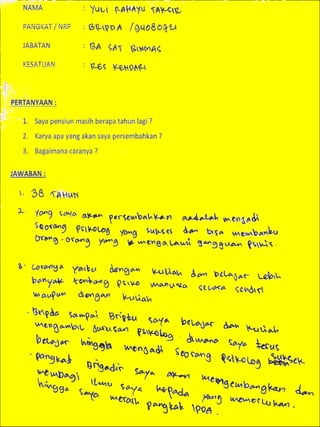 NAMA : YULI RAHAYU TAKSIR
PANGKAT / NRP : BRIPDA / 94080721
JABATAN : BA SAT BINMAS
KESATUAN : RES KENDARI
PERTANYAAN :
1. Saya pensiun masih berapa tahun lagi ?
2. Karya apa yang akan saya persembahkan ?
3. Bagaimana caranya ?
JAWABAN :
1. 38 TAHUN
2. Yang saya akan persembahkan aadalah menjadi
seorang psikolog yang sukses dan bisa membantu
orang-orang yang mengalami gangguan psikis.
3. Caranya yaitu dengan kuliah dan belajar lebih
banyak tentang psiko manusia secara sendiri
maupun dengan kuliah
- Bripda sampai Briptu saya belajar dan kuliah
mengambil jurusan psikolog. dimana saya terus
belajar hingga menjadi seorang psikolog suksek
- Pangkat Brigadir saya akan mengembangkan dan
membagi ilmu saya kepada yang memerlukan.
hingga saya meraih pangkat IPDA.